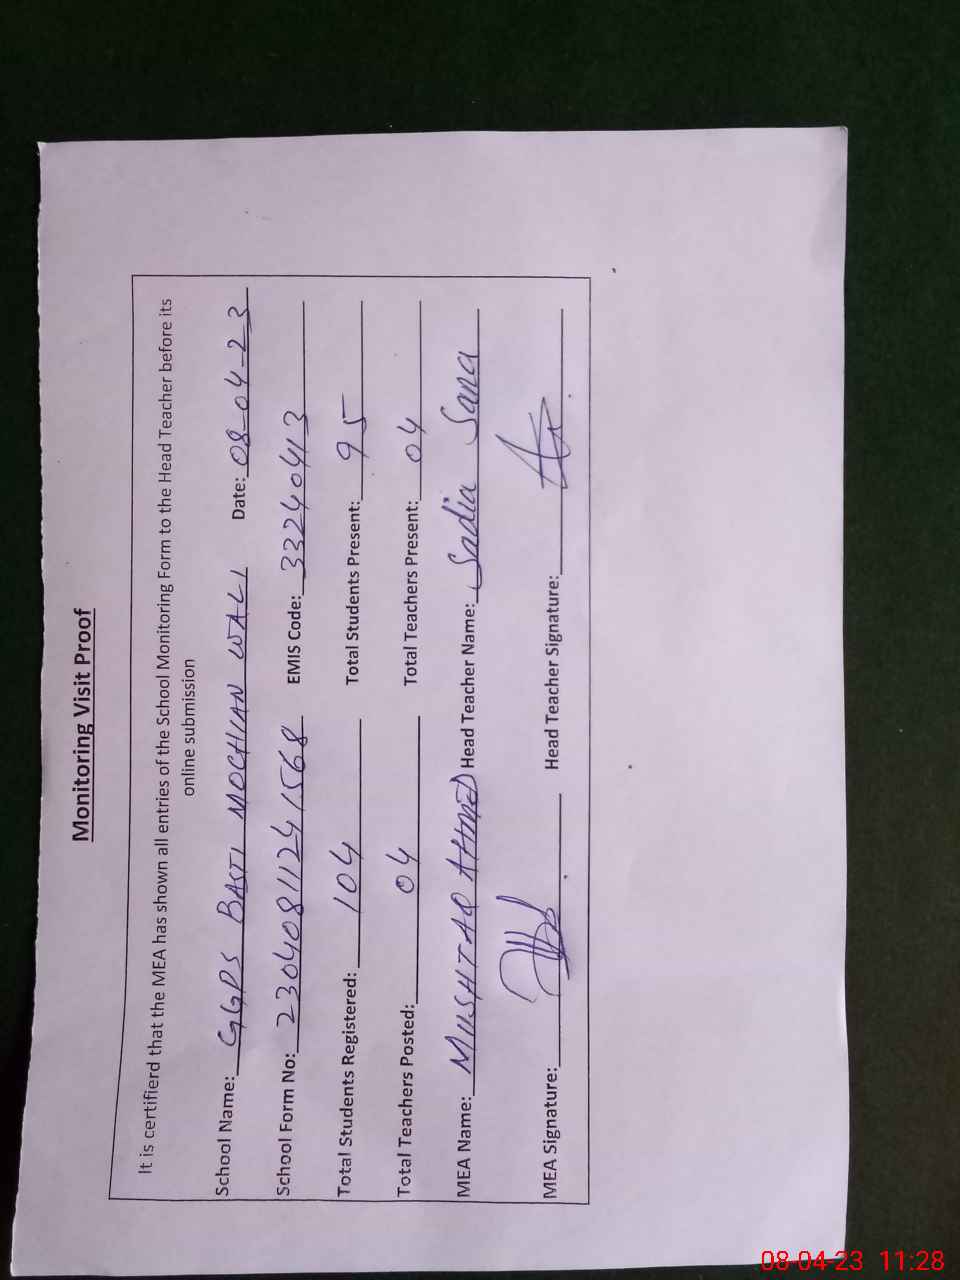 Monitoring Visit Proof
It is certifierd that the MEA has shown all entries of the School Monitoring Form to the Head Teacher before its
online submission
School Name: GGPS BASTI MOCHIAN WALI Date: 08-04-23
School Form No: 230408112241568 EMIS Code: 33240413
Total Students Registered: 104 Total Students Present: 95
Total Teachers Posted: 04 Total Teachers Present: 04
MEA Name: MUSHTAQ AHMED Head Teacher Name: Sadia Sana
MEA Signature: Head Teacher Signature:
08-04-23 11:28